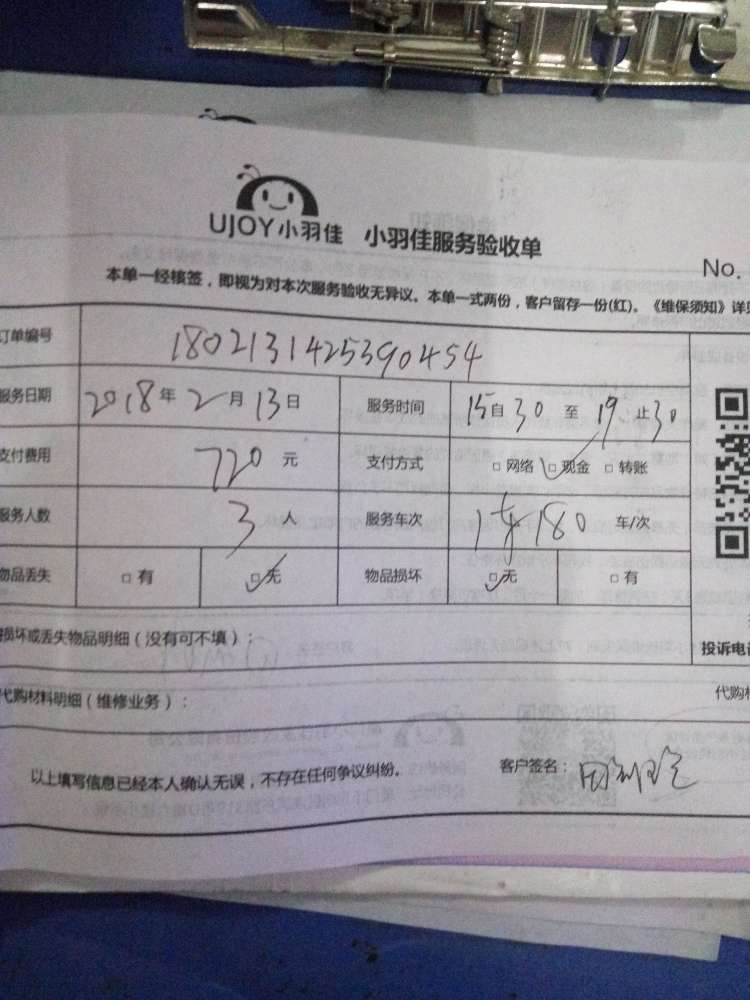 UJOY小羽佳 小羽佳服务验收单
No.
本单一经核签，即视为对本次服务验收无异议。本单一式两份，客户留存一份(红)。《维保须知》详见
订单编号 1802131425390454
服务日期 2018年2月13日 服务时间 15自30至19止30
支付费用 720元 支付方式 □网络 □现金 □转账
服务人数 3人 服务车次 180 车/次
物品丢失 □有 □无 物品损坏 □无 □有
损坏或丢失物品明细（没有可不填）：
投诉电话
代购材料明细（维修业务）：
代购材
以上填写信息已经本人确认无误，不存在任何争议纠纷。 客户签名：